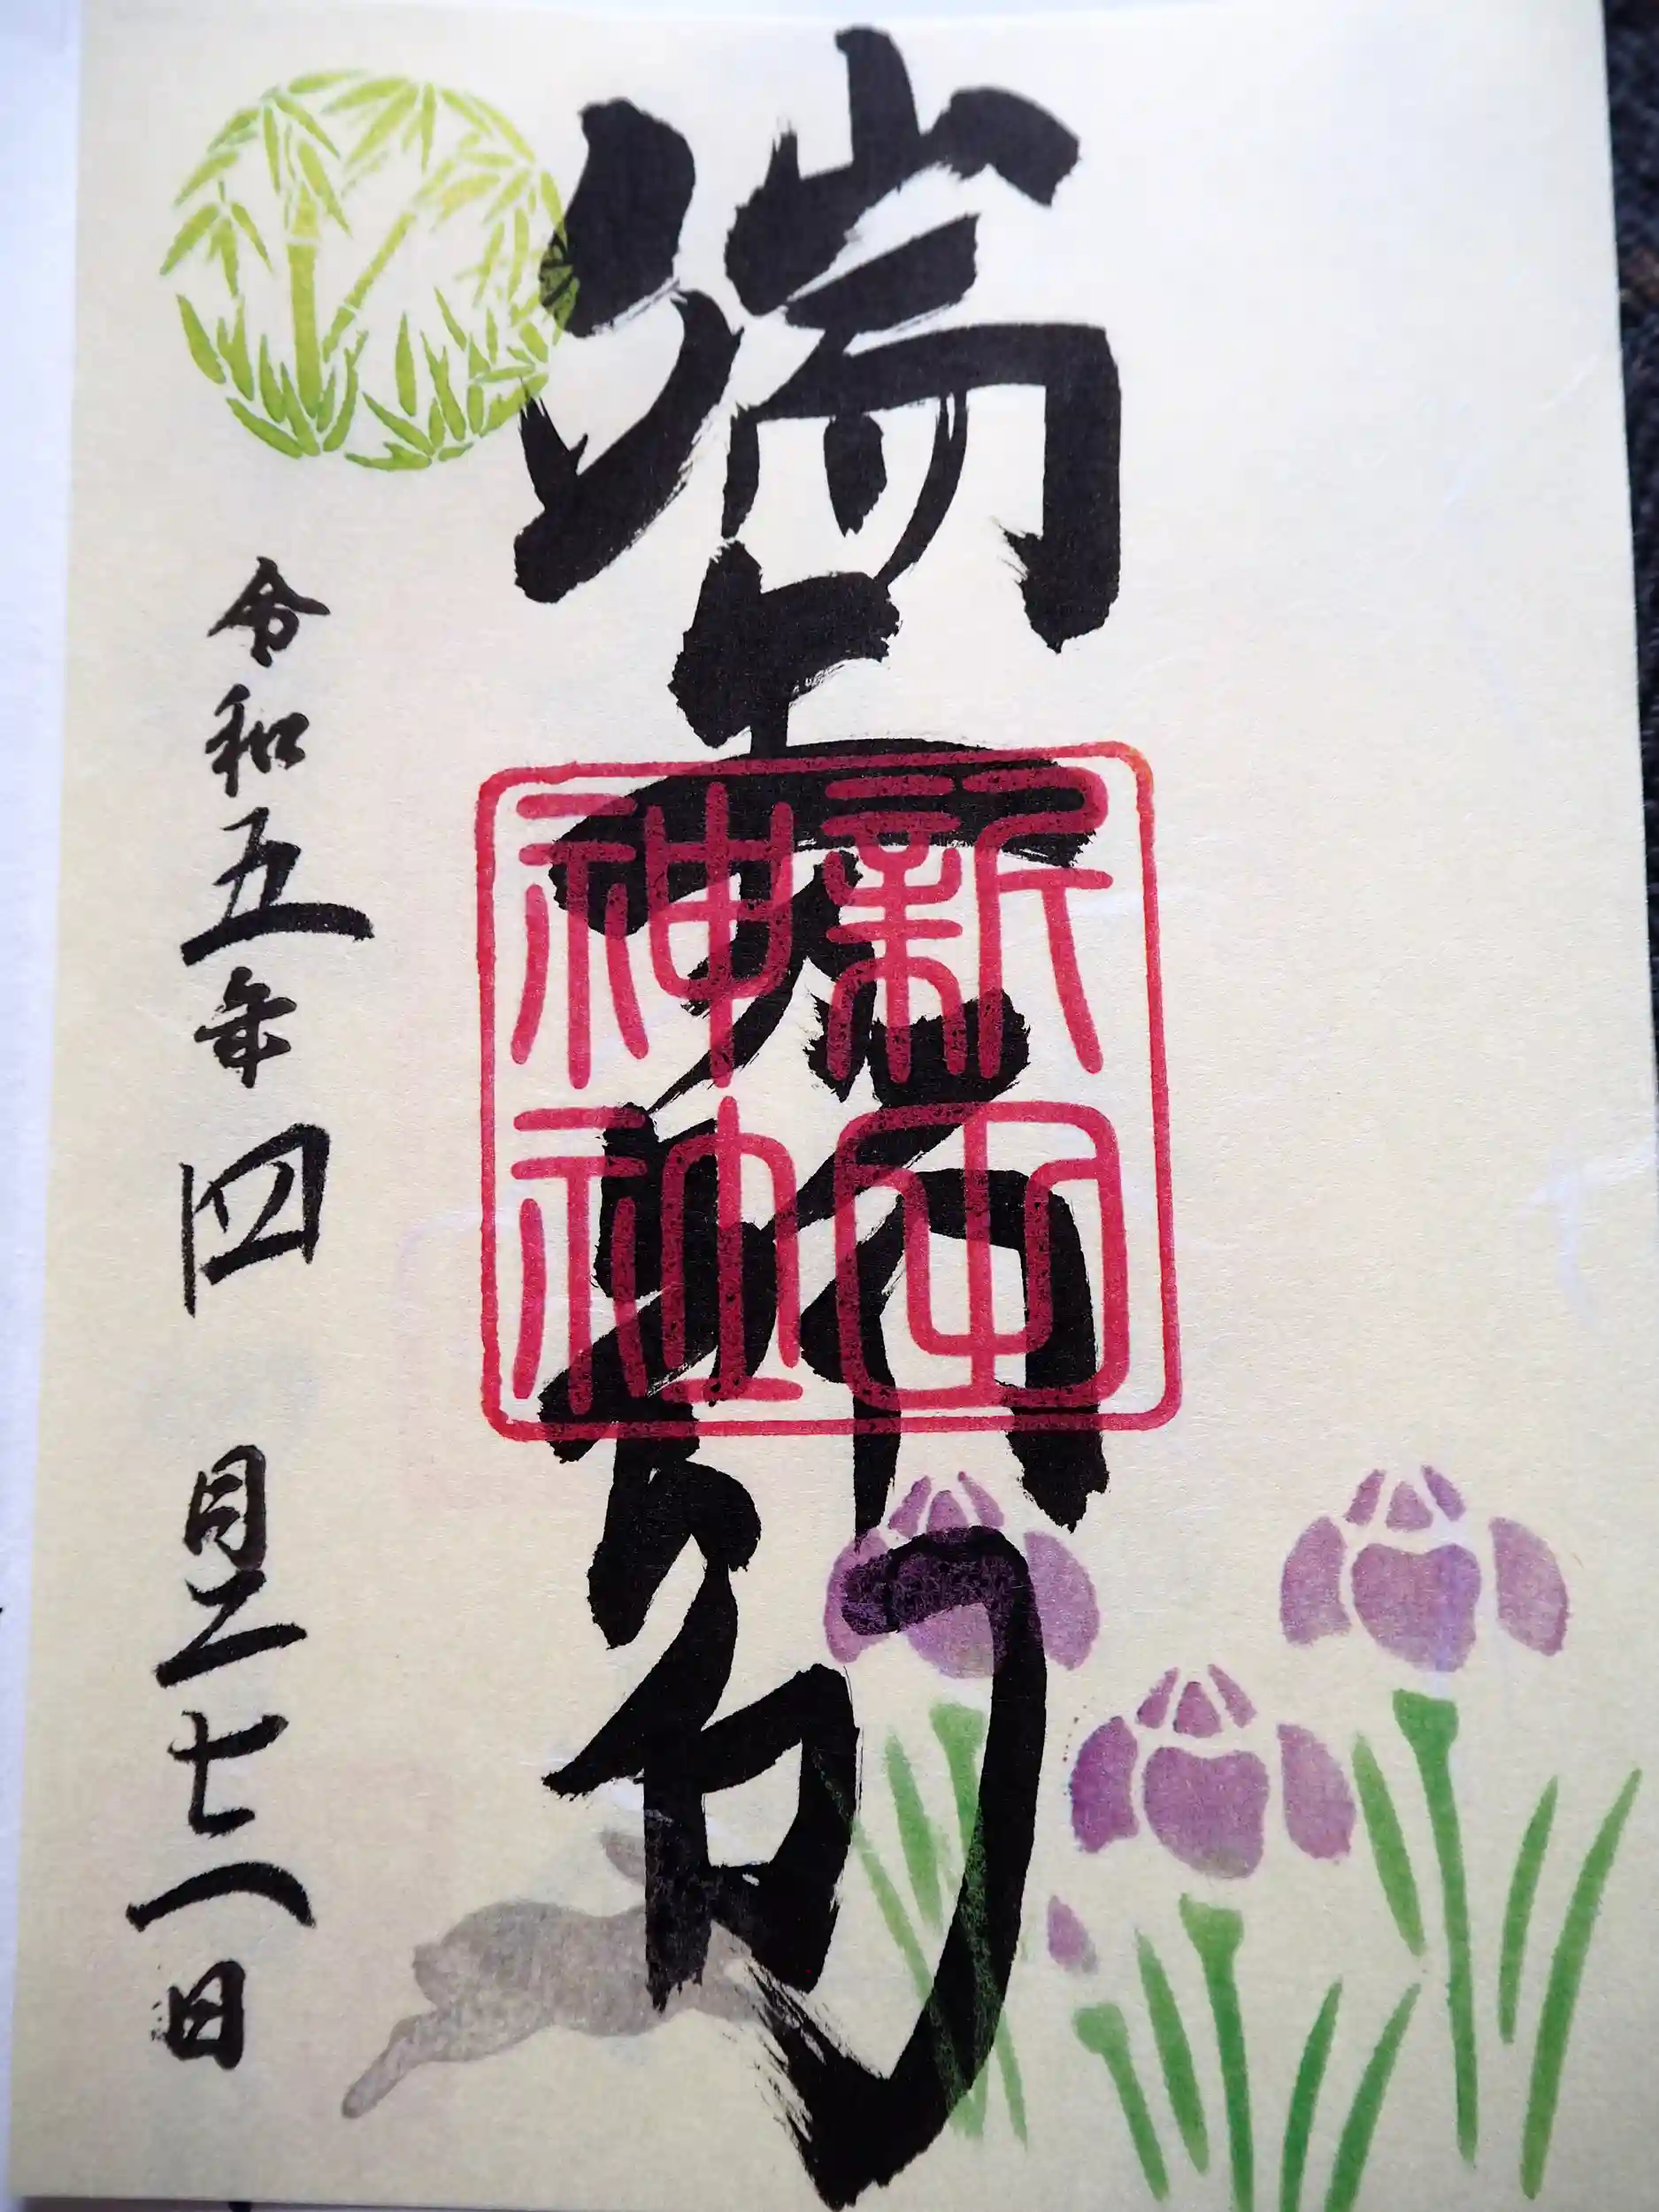 端午節句
新田
神社
令和五年四月二十八日